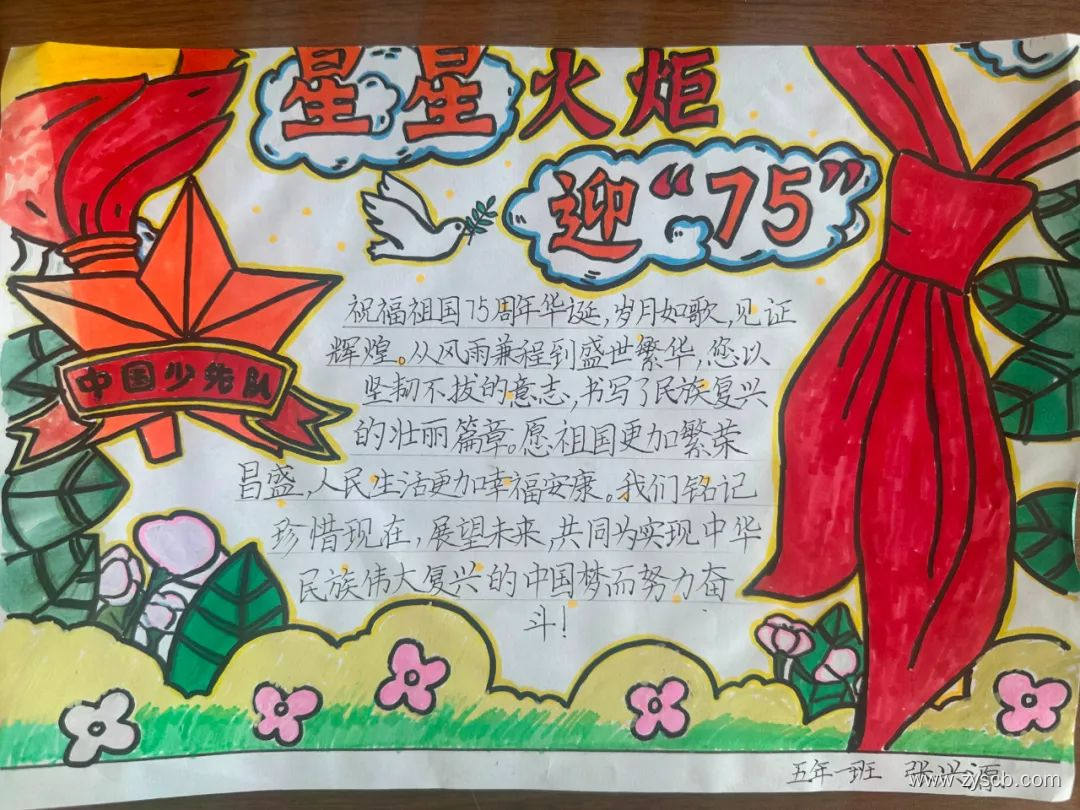 星星火炬
迎“75”
中国少先队
祝福祖国75周年华诞,岁月如歌,见证
辉煌。从风雨兼程到盛世繁华,您以
坚韧不拔的意志,书写了民族复兴
的壮丽篇章。愿祖国更加繁荣
昌盛,人民生活更加幸福安康。我们铭记
珍惜现在,展望未来,共同为实现中华
民族伟大复兴的中国梦而努力奋
斗!
五年一班 张兴源
www.zyscb.com